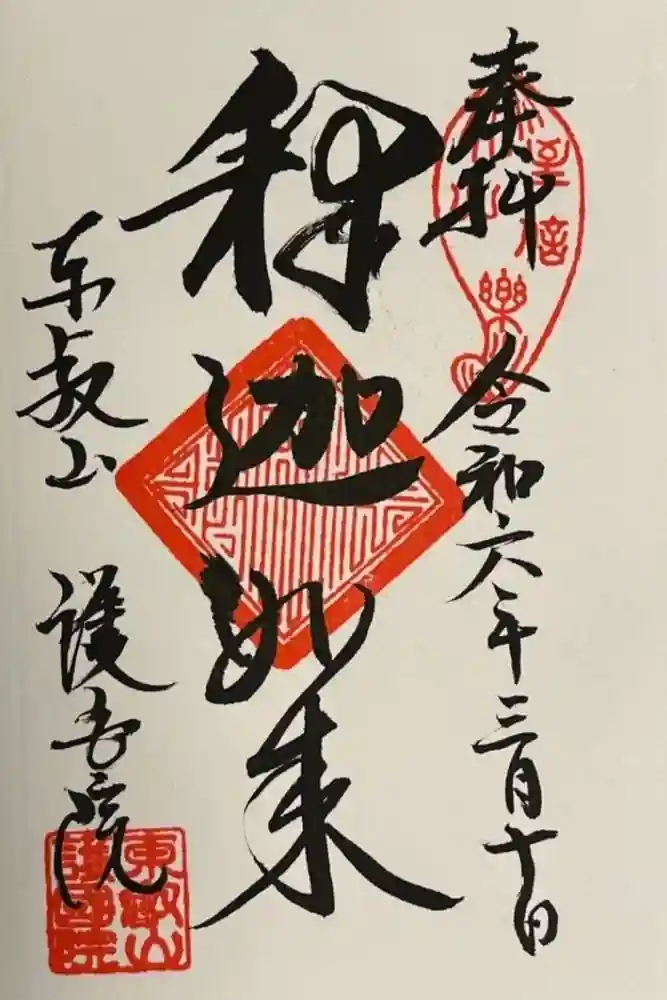 奉拝
令和六年三月十日
釈迦如来
東叡山 護国院
東叡山
護國院